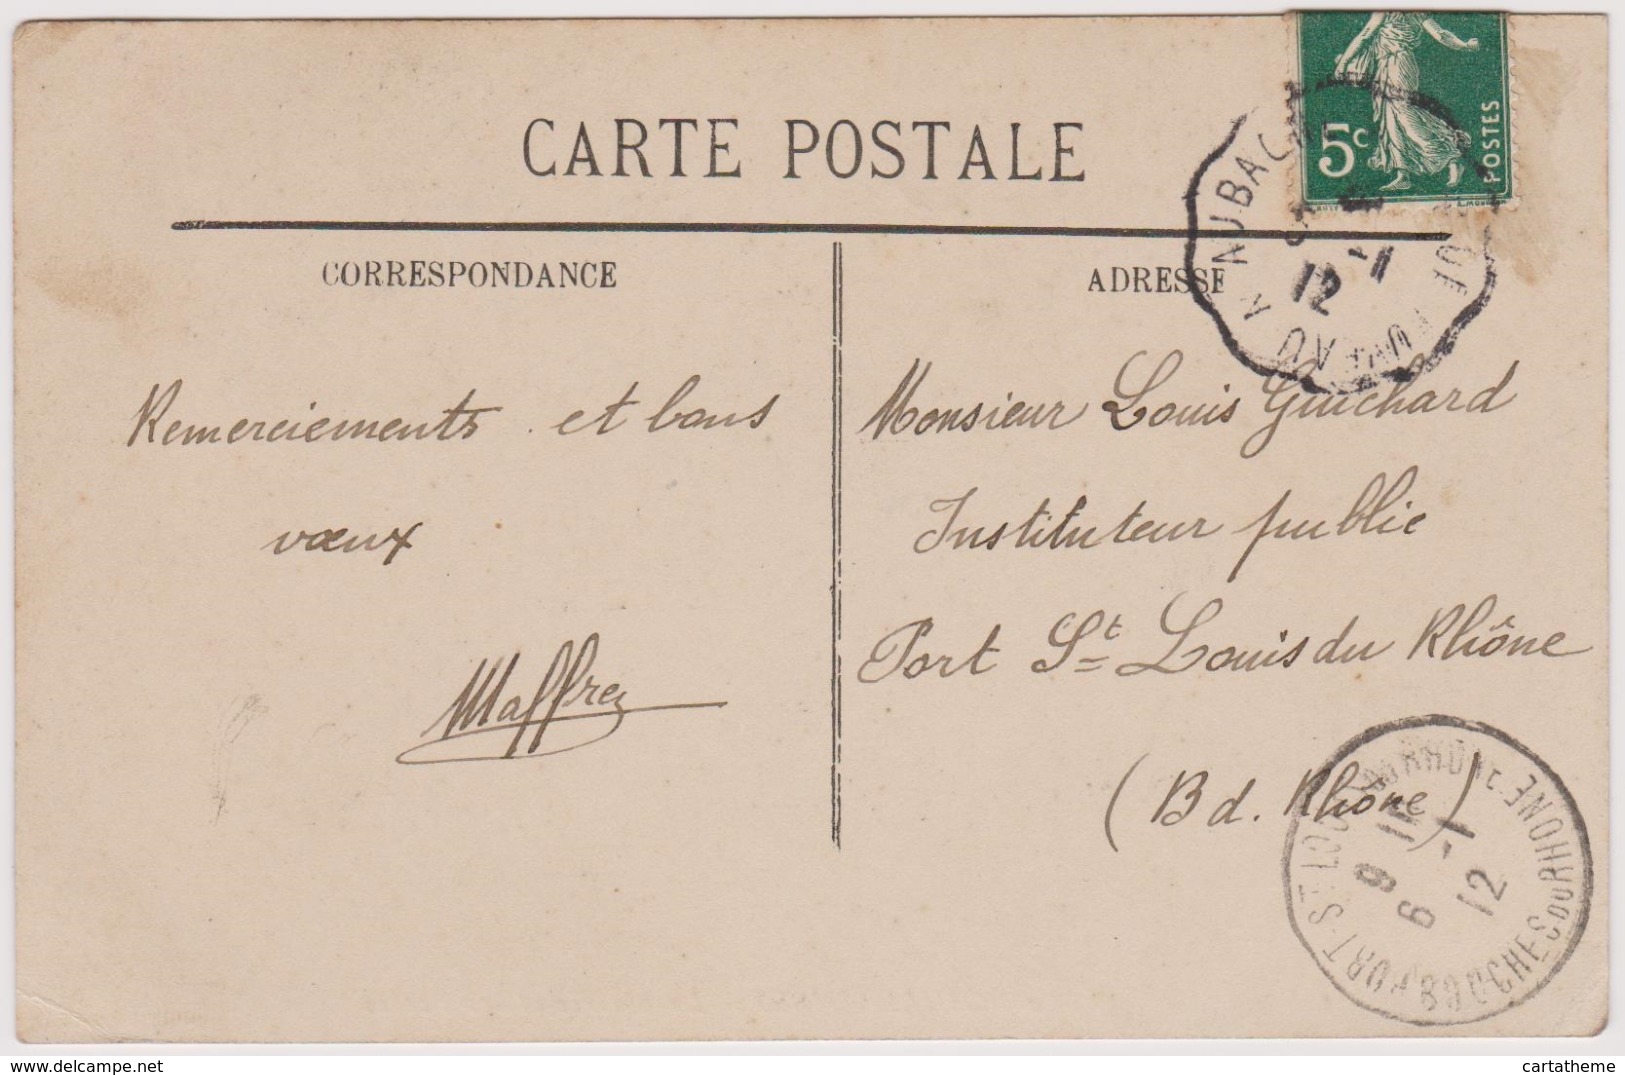 CARTE POSTALE
5c
POSTES
CORRESPONDANCE
ADRESSE
12
Remerciements et bons
vœux
Maffrey
Monsieur Louis Guichard
Instituteur public
Port St Louis du Rhône
(B d. Rhône)
PORT-ST LOUIS DU RHONE
BOUCHES DU RHONE
6 -1
12
delcampe.net
cartatheme